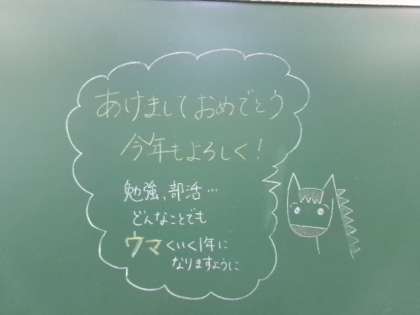 あけましておめでとう
今年もよろしく!
勉強、部活…
どんなことでも
ウマくいく1年に
なりますように